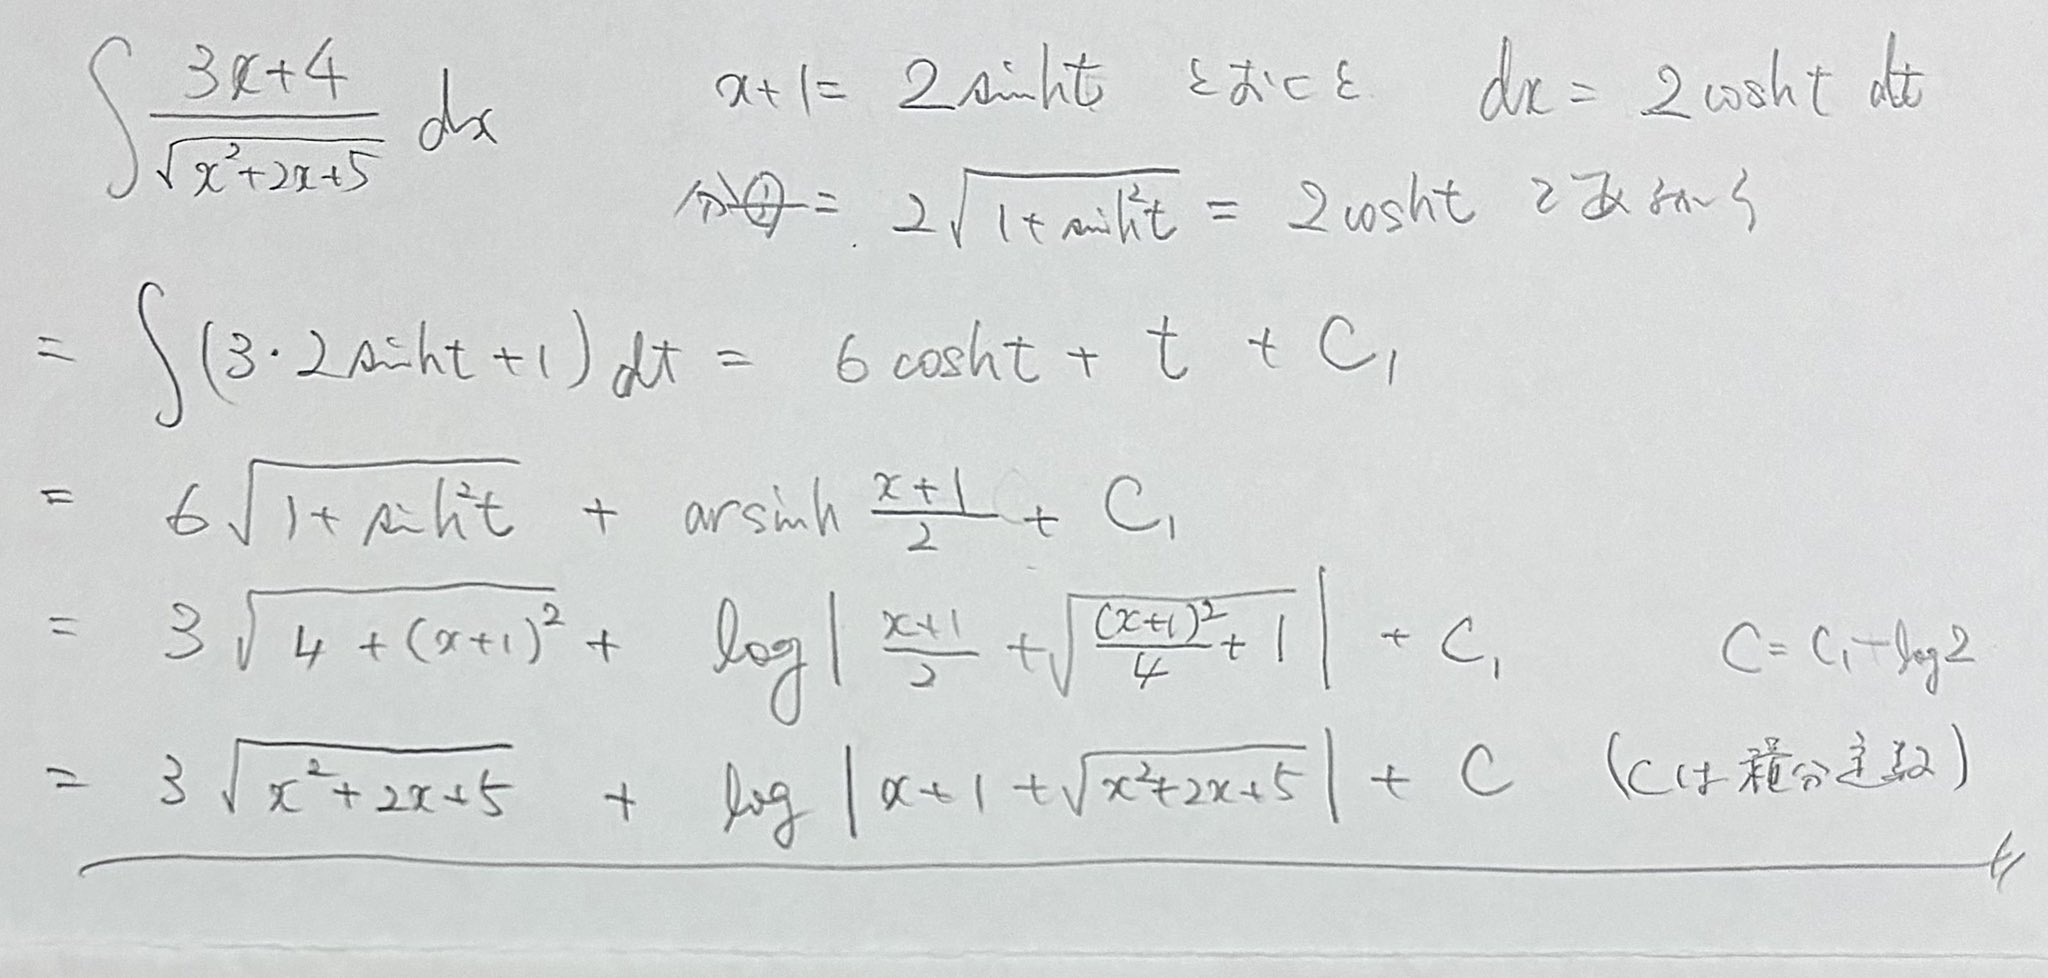 ∫ (3x+4)/√(x²+2x+5) dx   x+1 = 2 sinh t とおくと   dx = 2 cosh t dt
分母 = 2√(1+sinh²t) = 2 cosh t であるから
= ∫ (3・2 sinh t + 1) dt = 6 cosh t + t + C₁
= 6√(1+sinh²t) + arsinh (x+1)/2 + C₁
= 3√(4+(x+1)²) + log | (x+1)/2 + √((x+1)²/4 + 1) | + C₁   C = C₁ - log 2
= 3√(x²+2x+5) + log | x+1+√(x²+2x+5) | + C   (Cは積分定数)